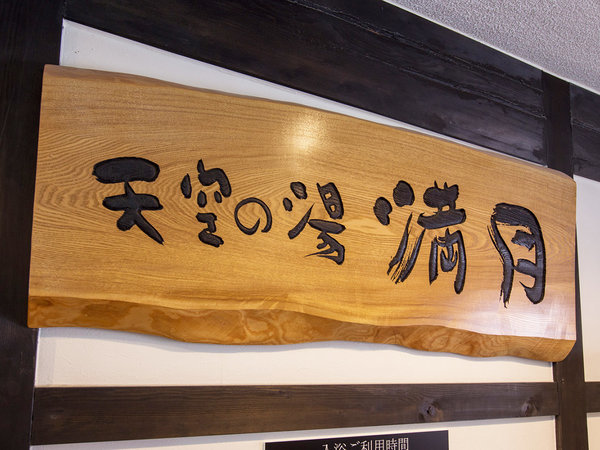 天空の湯 満月
入浴ご利用時間